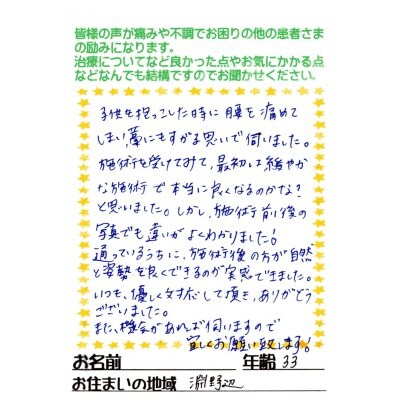 皆様の声が痛みや不調でお困りの他の患者さま
の励みになります。
治療についてなど良かった点やお気にかかる点
などなんでも結構ですのでお聞かせください。
子供を抱っこした時に腰を痛めて
しまい、藁にもすがる思いで伺いました。
施術を受けてみて、最初は緩やか
な施術で本当に良くなるのかな?
と思いました。しかし、施術前後の
写真でも違いがよくわかりました!
通っているうちに、施術後の方が自然
と姿勢を良くできるのが実感できました。
いつも、優しく対応して頂き、ありがとう
ございました。
また、機会があれば伺いますので
宜しくお願い致します!
お名前 年齢 33
お住まいの地域 淵野辺